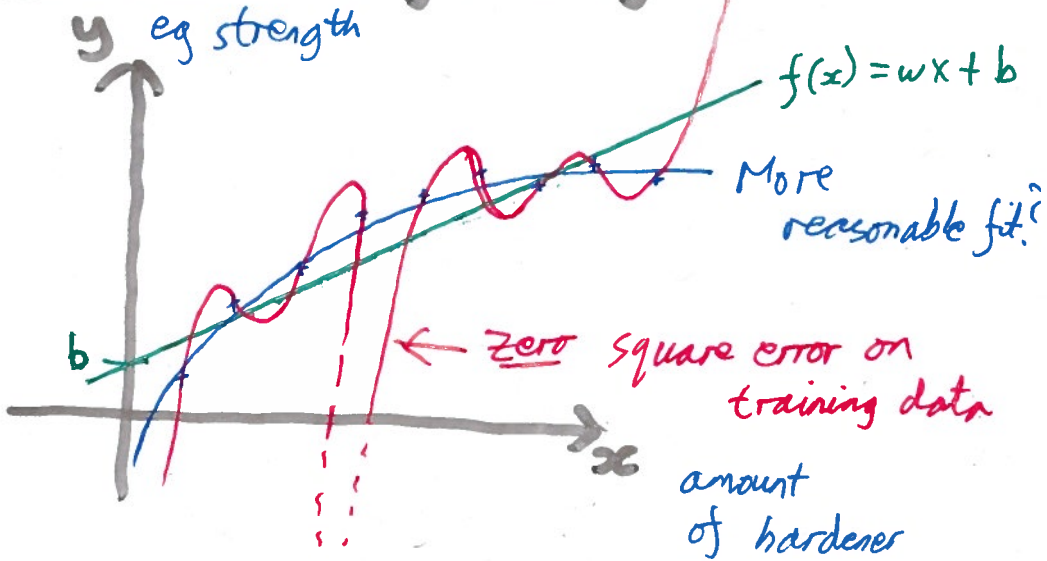 y eg strength
f(x) = wx + b
More
reasonable fit?
b
zero square error on
training data
x
amount
of hardener